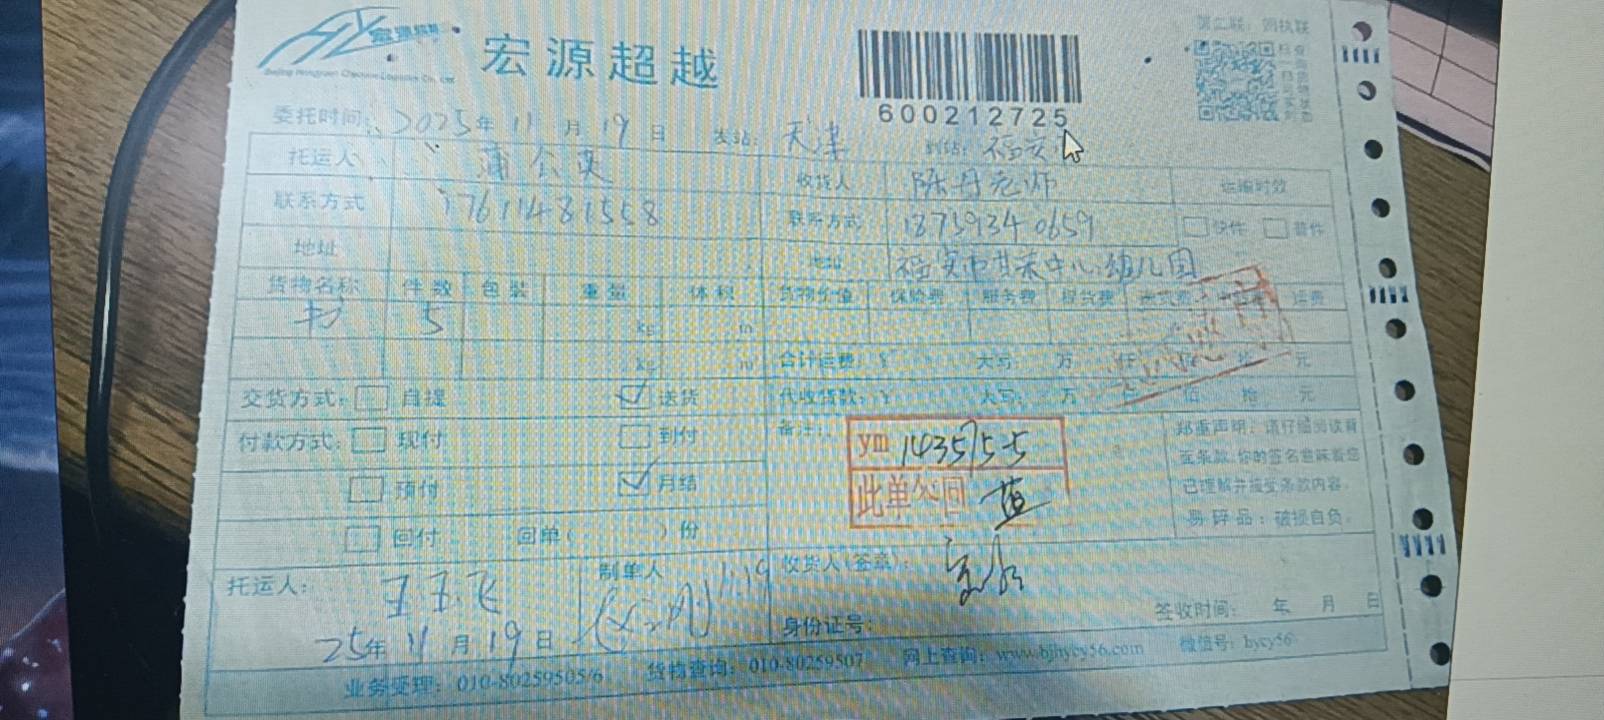 宏源超越
600212725
委托时间：2025年11月19日 发站：天津 到站：福安
托运人 蒲公英 收货人 陈丹老师 运输时效
联系方式 17611481558 联系方式 18759340659 快件 普件
地址 地址 福安市甘棠中心幼儿园
货物名称 件数 包装 重量 体积 货物价值 保险费 服务费 提货费 送货费 运费
书 5 kg m
kg m 合计运费：¥ 大写： 万 仟 佰 拾 元
交货方式： 自提 ✓ 送货 代收货款：¥ 大写： 万 仟 佰 拾 元
付款方式： 现付 到付 备注：
ym 1435755
郑重声明：请仔细阅读背
面条款，你的签名意味着您
预付 ✓ 月结
此单公回
已理解并接受条款内容。
易碎品：破损自负。
回付 回单（ ）份
托运人： 王玉飞 制单人 11.19 收货人（签章）：
25年11月19日 身份证号： 签收时间： 年 月 日
业务受理：010-80259505/6 货物查询：010-80259507 网上查询：www.bjhycy56.com 微信号：hycy56